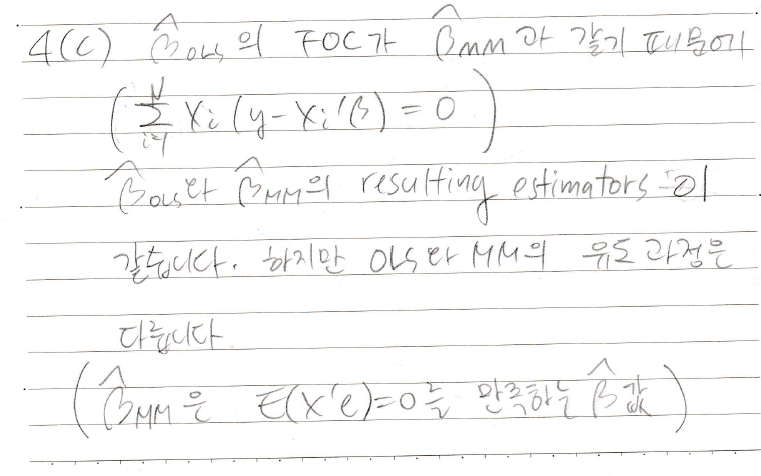 4(c) β̂OLS의 FOC가 β̂MM과 같기 때문에
(∑ᵢ₌₁ᴺ Xᵢ(y-Xᵢ'β) = 0)
β̂OLS와 β̂MM의 resulting estimators 이
같습니다. 하지만 OLS와 MM의 유도 과정은
다릅니다
(β̂MM은 E(X'e)=0을 만족하는 β̂값)